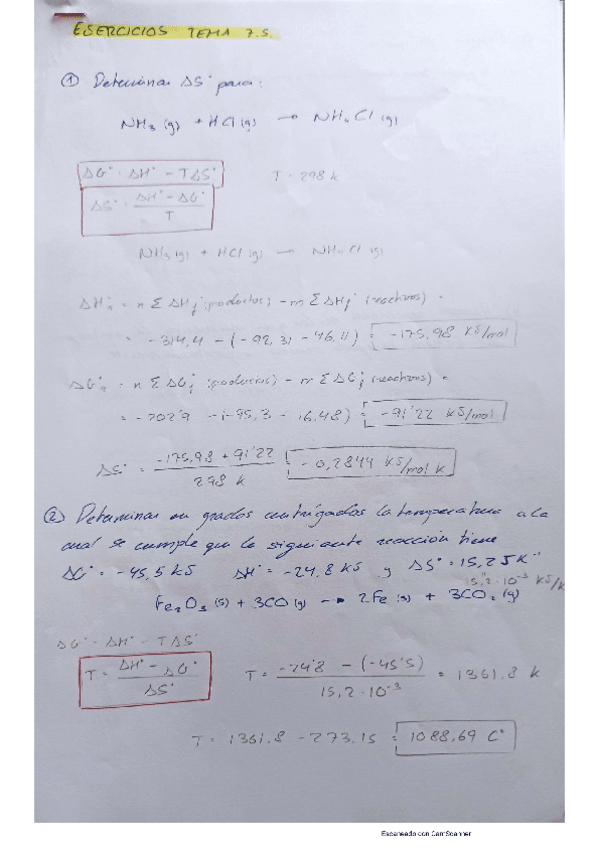 EJERCICIOS TEMA 7.5.
① Determinar ΔS° para:
NH₃ (g) + HCl (g) → NH₄Cl (g)
ΔG° = ΔH° - TΔS°
T = 298 K
ΔS° = (ΔH° - ΔG°) / T
NH₃ (g) + HCl (g) → NH₄Cl (g)
ΔH°r = n Σ ΔHf° (productos) - m Σ ΔHf° (reactivos) =
= -314,4 - (-92,31 - 46,11) = -175,98 KJ/mol
ΔG°r = n Σ ΔGf° (productos) - m Σ ΔGf° (reactivos) =
= -202'9 - (-95,3 - 16,48) = -91'22 KJ/mol
ΔS° = (-175,98 + 91'22) / 298 K = -0,2844 KJ/mol K
② Determinar en grados centígrados la temperatura a la
cual se cumple que la siguiente reacción tiene
ΔG° = -45,5 KJ ΔH° = -24,8 KJ y ΔS° = 15,2 J K⁻¹
15,2·10⁻³ KJ/K
Fe₂O₃ (s) + 3CO (g) → 2Fe (s) + 3CO₂ (g)
ΔG° = ΔH° - TΔS°
T = (ΔH° - ΔG°) / ΔS°
T = (-24'8 - (-45'5)) / 15,2·10⁻³ = 1361.8 K
T = 1361.8 - 273.15 = 1088.69 C°
Escaneado con CamScanner